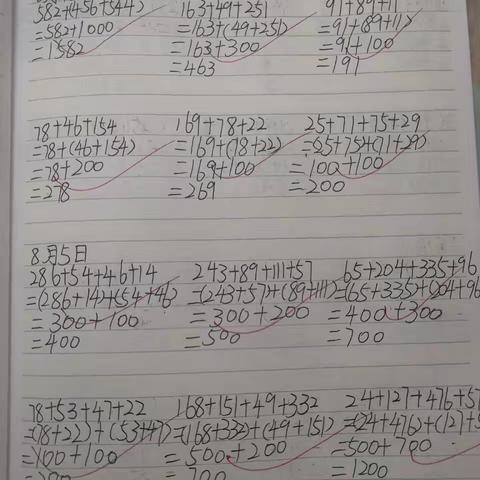 582+(456+544)
=582+1000
=1582
163+49+251
=163+(49+251)
=163+300
=463
91+89+11
=91+(89+11)
=91+100
=191
78+46+154
=78+(46+154)
=78+200
=278
169+78+22
=169+(78+22)
=169+100
=269
25+71+75+29
=(25+75)+(71+29)
=100+100
=200
8月5日
286+54+46+14
=(286+14)+(54+46)
=300+100
=400
243+89+111+57
=(243+57)+(89+111)
=300+200
=500
65+204+335+96
=(65+335)+(204+96
=400+300
=700
78+53+47+22
=(78+22)+(53+47)
=100+100
=200
168+151+49+332
=(168+332)+(49+151)
=500+200
=700
24+127+476+57
=(24+476)+(127+5
=500+700
=1200